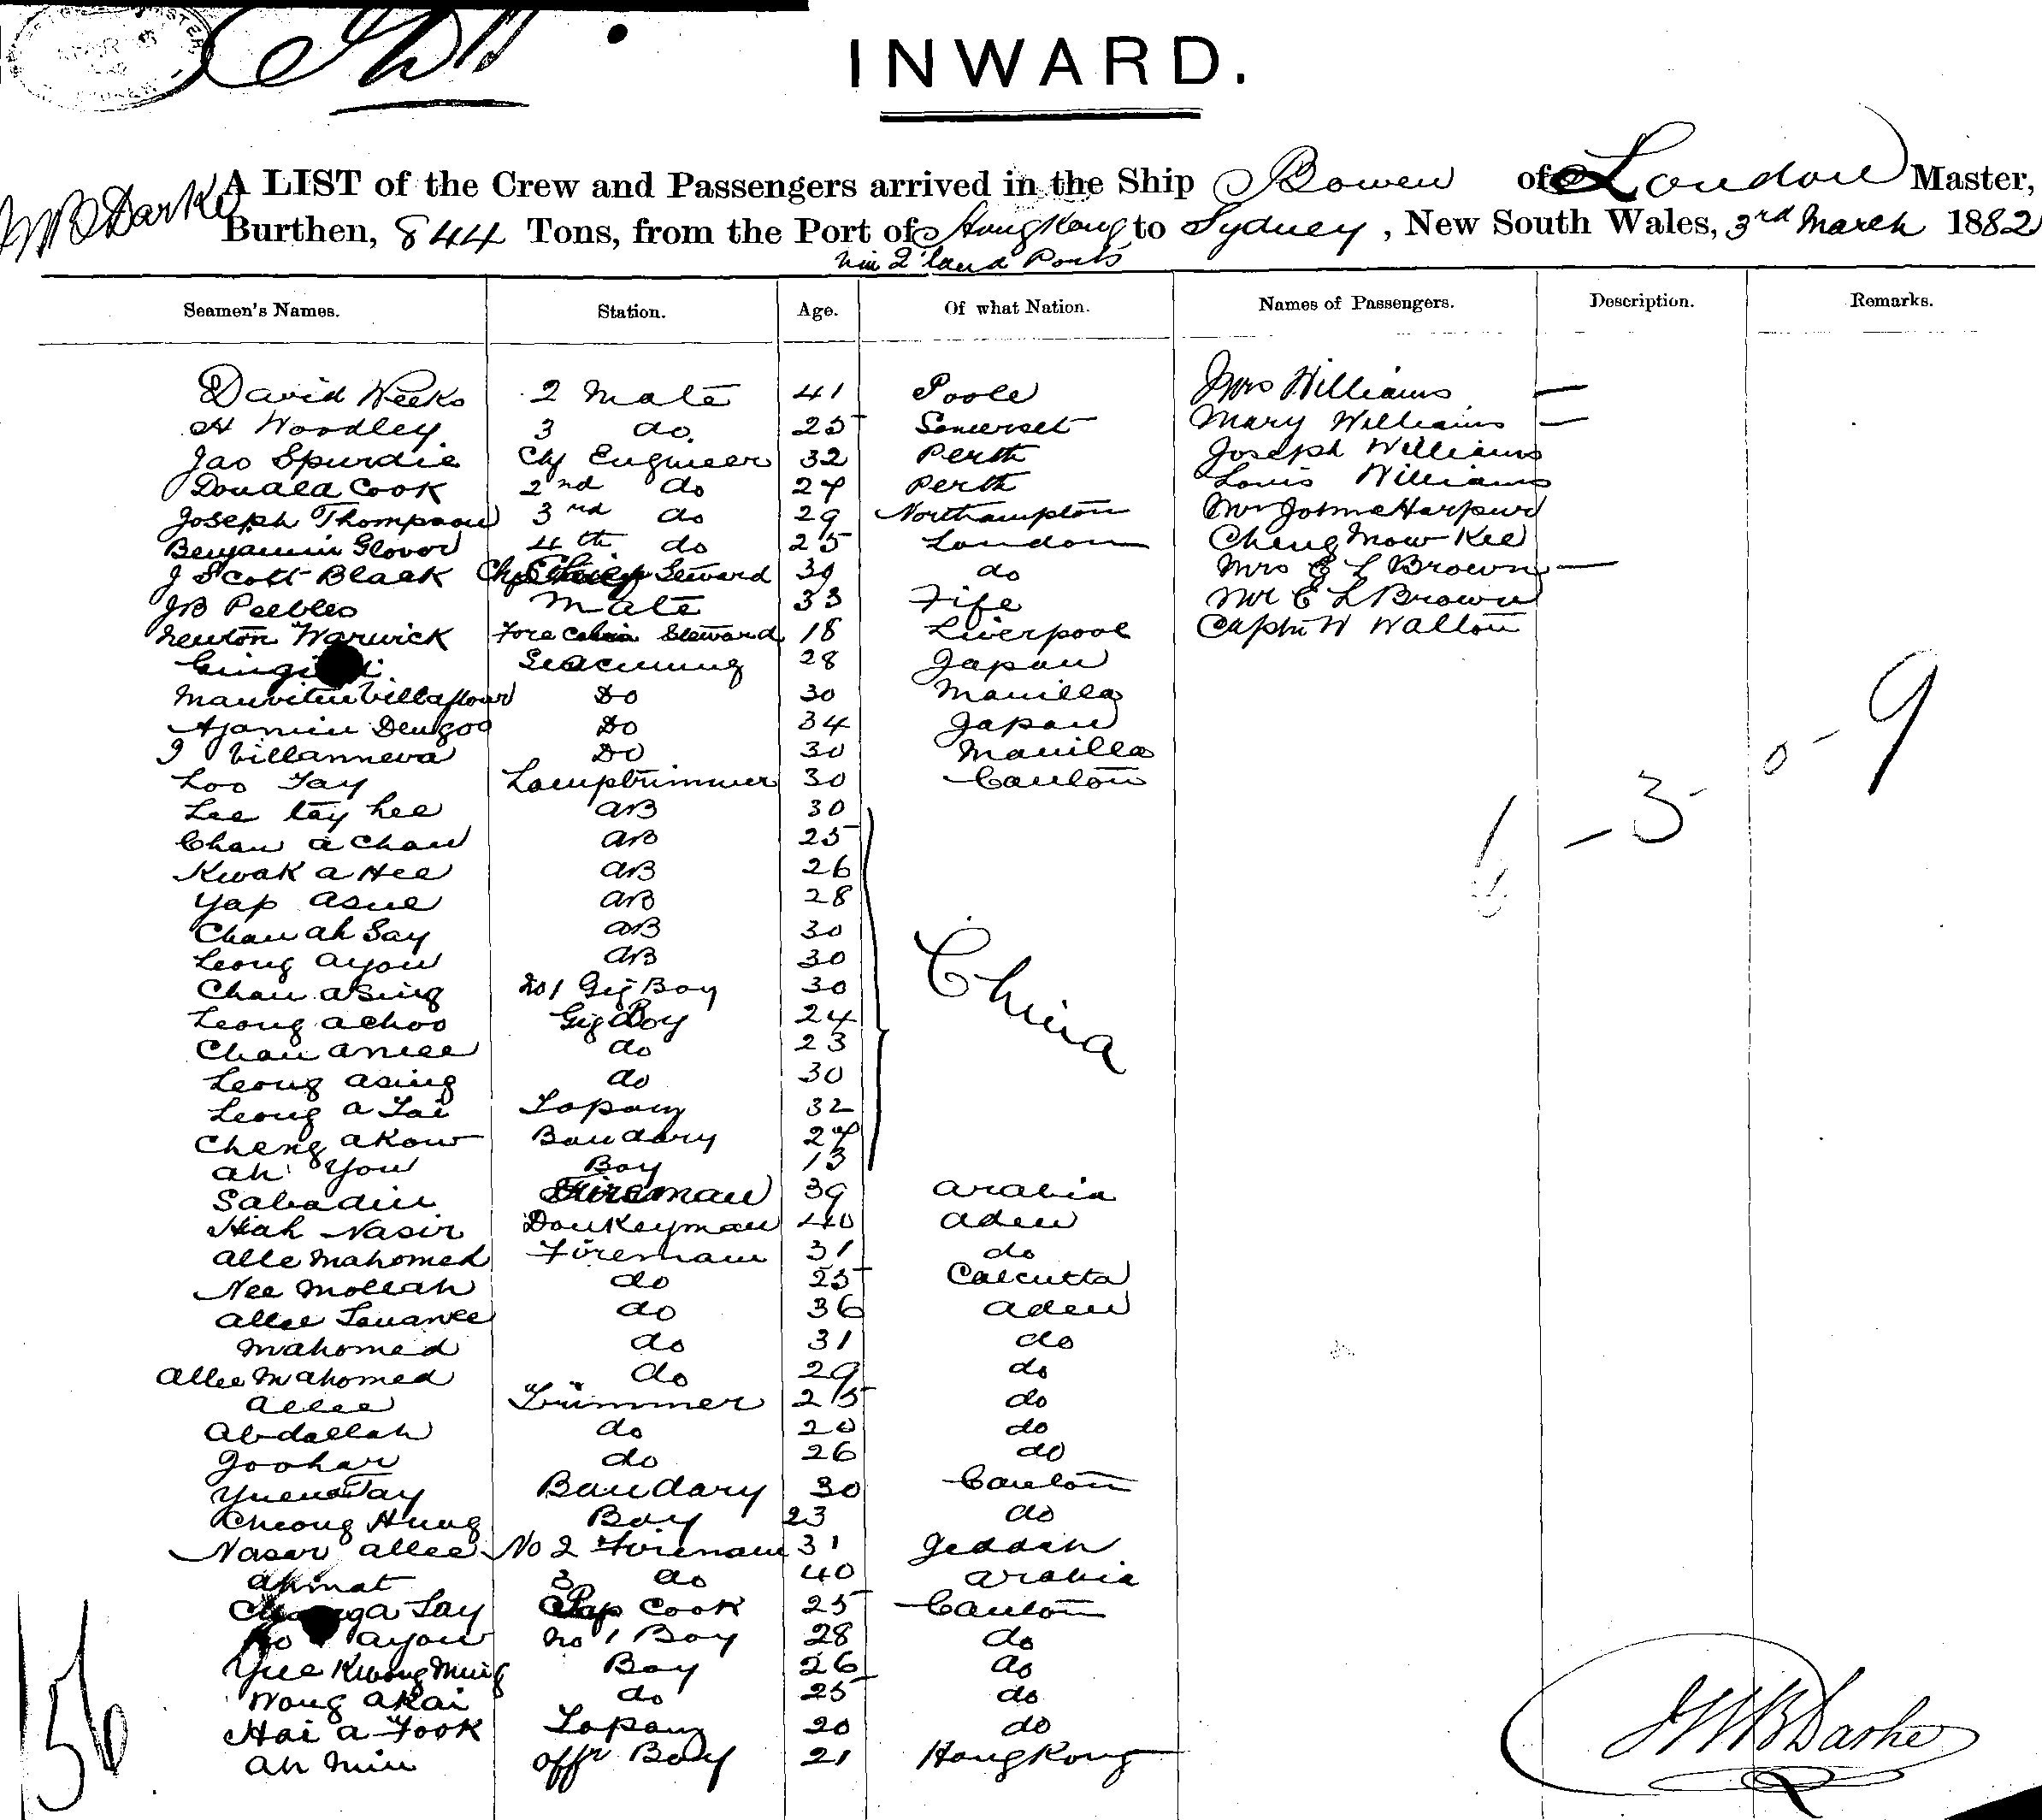 INWARD.
A LIST of the Crew and Passengers arrived in the Ship Bowen of London Master,
J W B Darke Burthen, 844 Tons, from the Port of Hong Kong to Sydney, New South Wales, 3rd March 1882
via Q'land Ports
Seamen's Names. Station. Age. Of what Nation. Names of Passengers. Description. Remarks.
David Weeks 2 Mate 41 Poole Mrs Williams —
H Woodley 3 do. 25 Somerset Mary Williams —
Jas Spurdie Chf Engineer 32 Perth Joseph Williams
Donald Cook 2nd do 27 Perth Louis Williams
Joseph Thompson 3rd do 29 Northampton Mr Harpur
Benjamin Glover 4th do 25 London Cheng Mow Kee
J Scott Black Steward 39 do Mrs E L Brown —
JB Peebles Mate 33 Fife Mr E L Brown
Newton Warwick Fore Cabin Steward 18 Liverpool Captn W Walton
28 Japan
Do 30 Manilla
Do 34 Japan
Do 30 Manilla
Loo Tay Lamptrimmer 30 Canton
Lee tay hee AB 30
Chan a Chan AB 25
Kwak a Hee AB 26
Yap asue AB 28
Chan ah Say AB 30
Leong ayow AB 30
Chan asing No 1 Gig Boy 30
Leong achoo Gig Boy 24
Chan amee do 23
Leong asing do 30
Leong a Tai Topang 32
Cheng akow Bandary 27
ah You Boy 13
China
Sabadin Fireman 39 Arabia
Hah Nasir Donkeyman 40 Aden
Alle Mahomed Fireman 31 do
Nee Mollah do 25 Calcutta
Allee do 36 Aden
Mahomed do 31 do
Allee Mahomed do 29 do
Allee Trimmer 25 do
Abdallah do 20 do
Goohar do 26 do
Yuen a Tay Bandary 30 Canton
Cheong Hung Boy 23 do
Nasar Allee No 2 Fireman 31 Jeddah
Ahmat 3 do 40 Arabia
a Tay Cook 25 Canton
ayow No 1 Boy 28 do
Yue Kwong Ming Boy 26 do
Wong akai do 25 do
Hai a Fook Topang 20 do
Ah Min Offr Boy 21 Hong Kong
1 - 3 - 0 - 9
56
J W B Darke